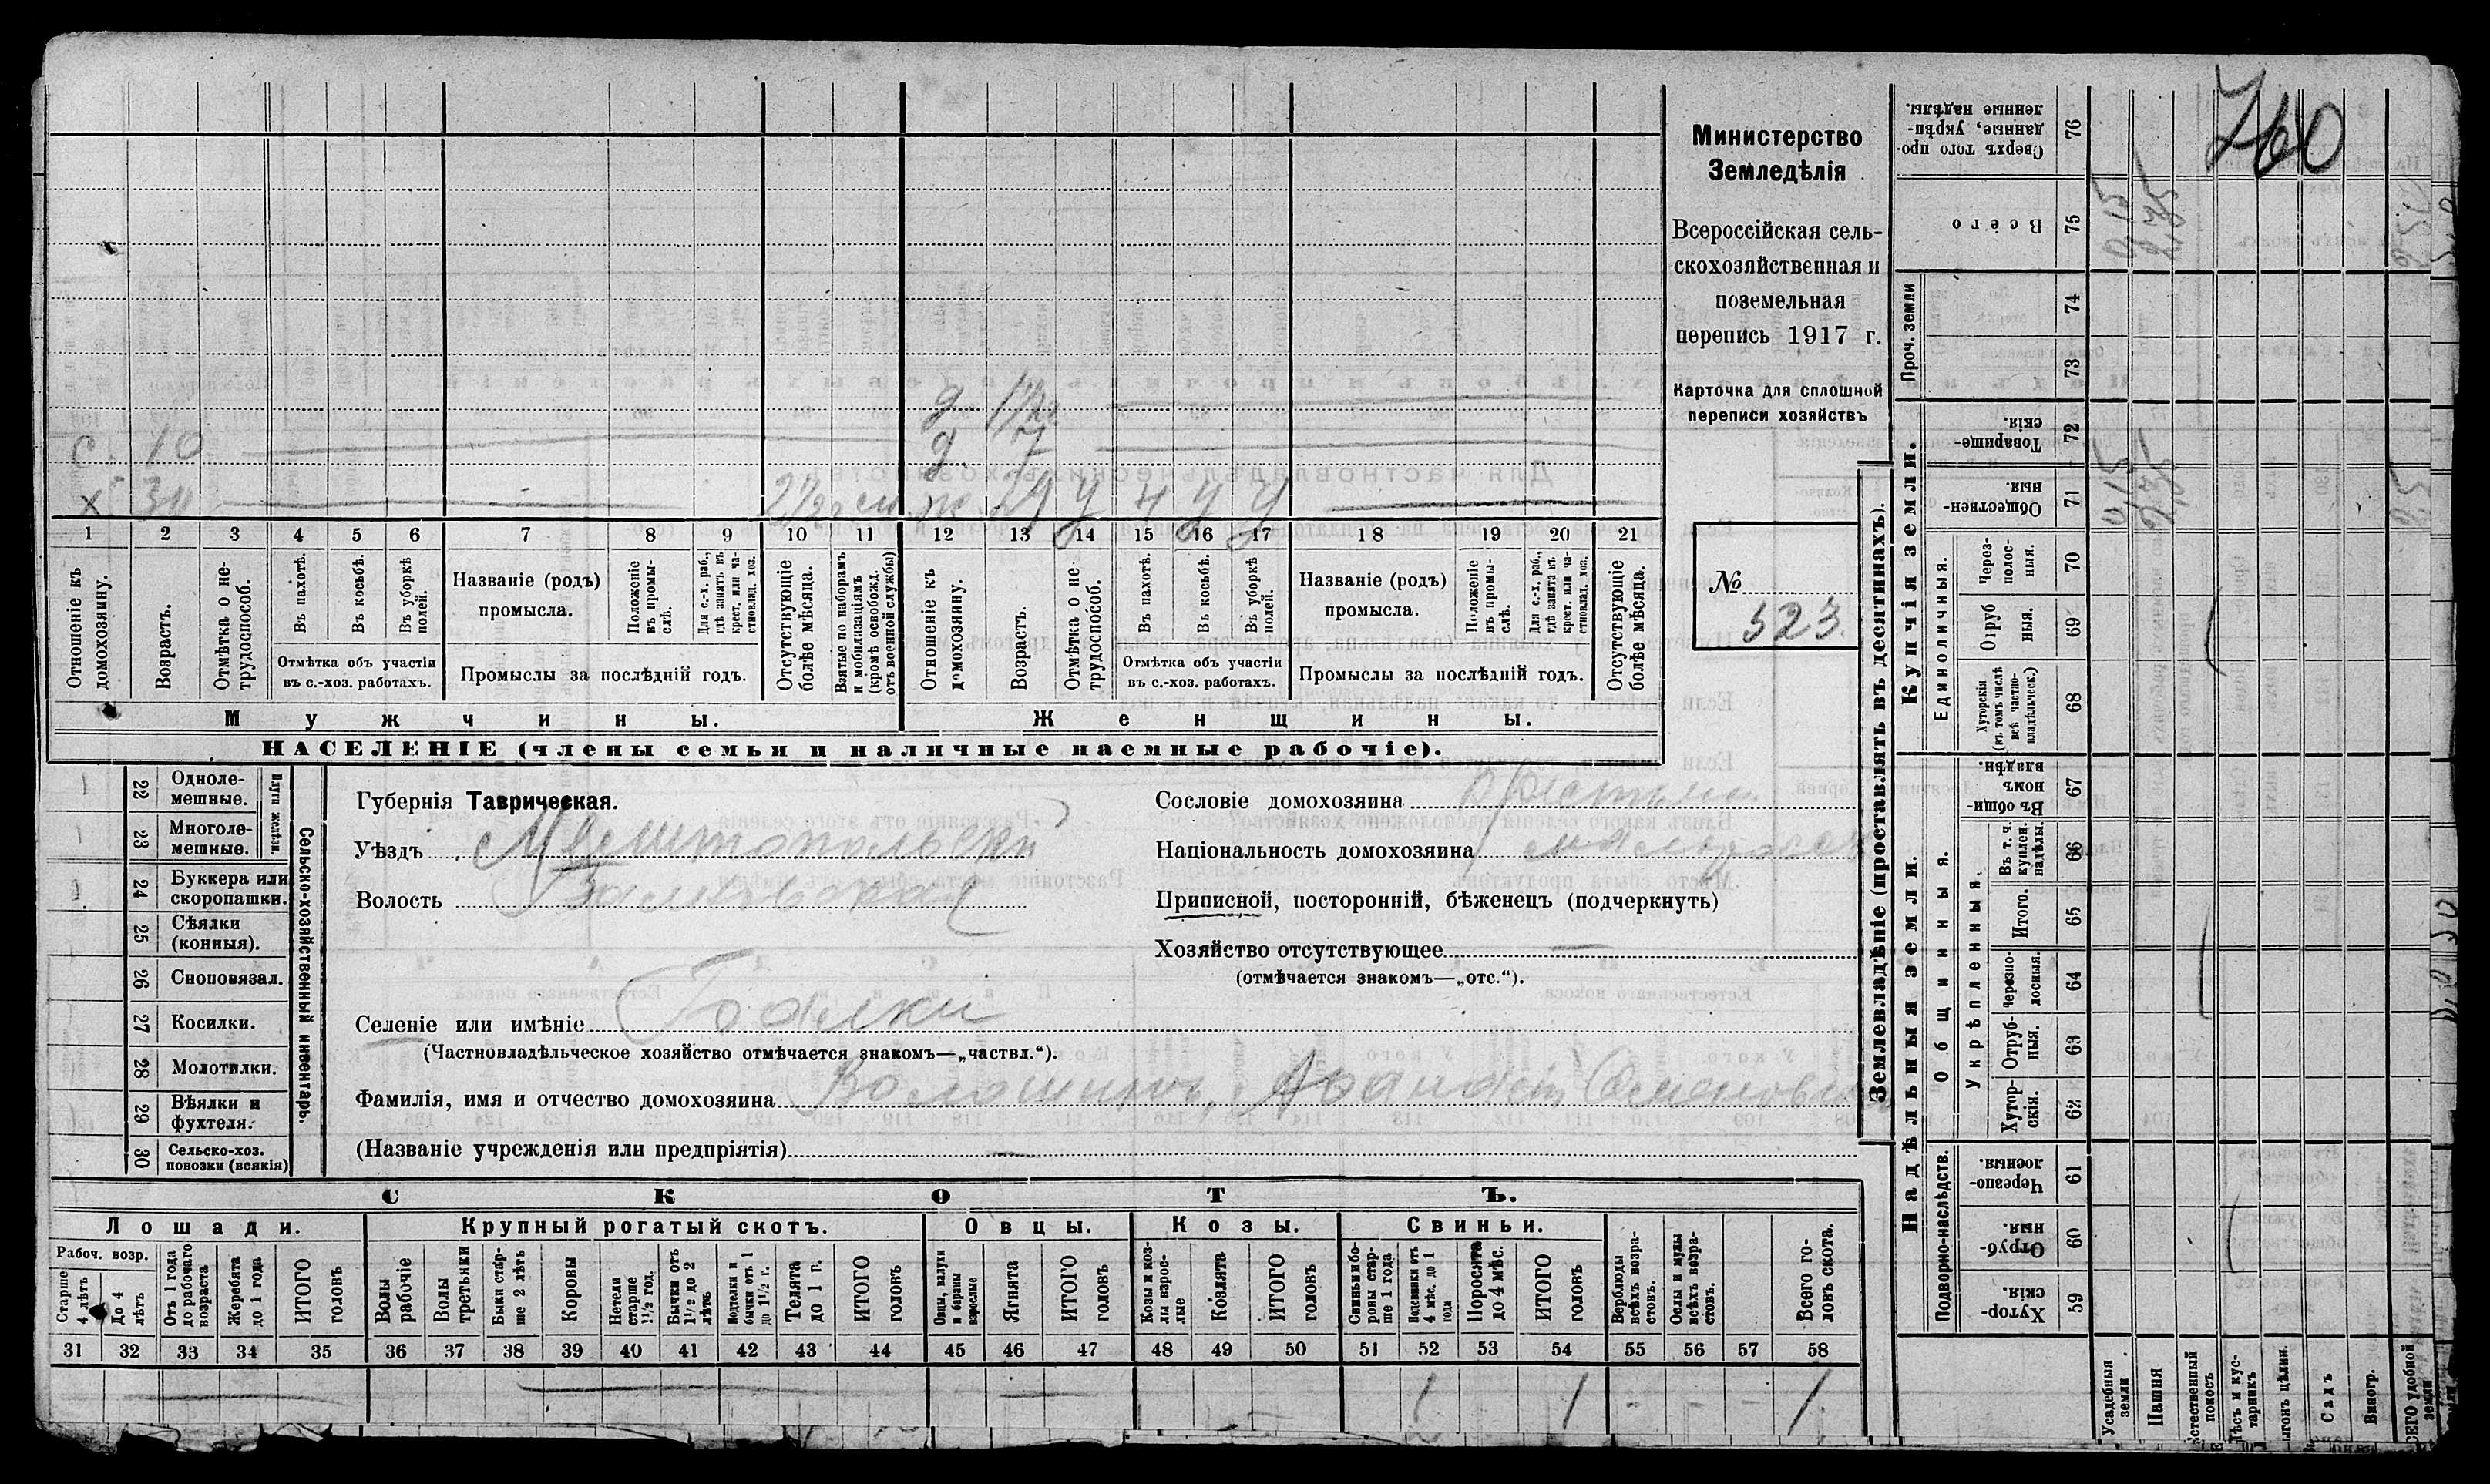 760
Министерство
Земледѣлія
Всероссійская сель-
скохозяйственная и
поземельная
перепись 1917 г.
Карточка для сплошной
переписи хозяйствъ
№
523.
д 1/2
с. 10
д. 7
х. 30
ж. 29 У Ч У У
1 2 3 4 5 6 7 8 9 10 11 12 13 14 15 16 17 18 19 20 21
Отношеніе къ домохозяину.
Возрастъ.
Отмѣтка о не-трудоспособ.
Въ пахотѣ.
Въ косьбѣ.
Въ уборкѣ полей.
Отмѣтка объ участіи
въ с.-хоз. работахъ.
Названіе (родъ)
промысла.
Положеніе въ промы-слѣ.
Для с.-х. раб., гдѣ занятъ въ крест. или ча-стновлад. хоз.
Промыслы за послѣдній годъ.
Отсутствующіе болѣе мѣсяца.
Взятые по наборамъ и мобилизаціямъ (кромѣ освобожд. отъ военной службы)
Отношеніе къ домохозяину.
Возрастъ.
Отмѣтка о не-трудоспособ.
Въ пахотѣ.
Въ косьбѣ.
Въ уборкѣ полей.
Отмѣтка объ участіи
въ с.-хоз. работахъ.
Названіе (родъ)
промысла.
Положеніе въ промы-слѣ.
Для с.-х. раб., гдѣ занята въ крест. или ча-стновлад. хоз.
Промыслы за послѣдній годъ.
Отсутствующіе болѣе мѣсяца.
Мужчины.
Женщины.
НАСЕЛЕНІЕ (члены семьи и наличные наемные рабочіе).
22 Одноле-мешные.
23 Многоле-мешные.
Плуги желѣзн.
24 Буккера или скоропашки.
25 Сѣялки (конныя).
26 Сноповязал.
27 Косилки.
28 Молотилки.
29 Вѣялки и фухтеля.
30 Сельско-хоз. повозки (всякія)
Сельско-хозяйственный инвентарь.
Губернія Таврическая.
Уѣздъ Мелитопольскій
Волость
Селеніе или имѣніе Балки
(Частновладѣльческое хозяйство отмѣчается знакомъ—„частвл.“).
Фамилія, имя и отчество домохозяина Волошинъ, Аѳанасій
(Названіе учрежденія или предпріятія)
Сословіе домохозяина крестьян.
Національность домохозяина малоросс
Приписной, посторонній, бѣженецъ (подчеркнуть)
Хозяйство отсутствующее
(отмѣчается знакомъ—„отс.“).
СКОТЪ.
Лошади.
Крупный рогатый скотъ.
Овцы.
Козы.
Свиньи.
Рабоч. возр.
Старше 4 лѣтъ
До 4 лѣтъ
Отъ 1 года до рабочаго возраста
Жеребята до 1 года
ИТОГО головъ
Волы рабочіе
Волы третьяки
Быки стар-ше 2 лѣтъ
Коровы
Нетели старше 1½ год.
Бычки отъ 1½ до 2 лѣтъ
Бодтелки и бычки отъ 1 до 1½ г.
Телята до 1 г.
ИТОГО головъ
Овцы, валухи и бараны взрослые
Ягнята
ИТОГО головъ
Козы и коз-лы взрос-лые
Козлята
ИТОГО головъ
Свиньи и бо-ровы стар-ше 1 года
Подсвинки отъ 4 мѣс. до 1 года
Поросята до 4 мѣс.
ИТОГО головъ
Верблюды всѣхъ возра-стовъ.
Ослы и мулы всѣхъ возра-стовъ.
Всего го-ловъ скота.
31 32 33 34 35 36 37 38 39 40 41 42 43 44 45 46 47 48 49 50 51 52 53 54 55 56 57 58
1 1 1
Землевладѣніе (проставлять въ десятинахъ).
Купчія земли.
Надѣльныя земли.
Сверхъ того про-данные, укрѣп-ленные надѣлы. 76
Всего 75
Проч. земли
74
73
Товарище-скія 72
Обществен-ныя. 71
Единоличныя.
Через-полос-ныя. 70
Отруб ныя. 69
Хуторскія (въ томъ числѣ всѣ частно-владѣльческ.) 68
Общинныя.
Въ общи-номъ владѣн. 67
Укрѣпленныя.
Въ т. ч. куплен. надѣлы. 66
Итого. 65
Черезпо-лосныя. 64
Отруб-ныя. 63
Хутор-скія. 62
Подворно-наслѣдств.
Черезпо-лосныя. 61
Отруб-ныя. 60
Хутор-скія. 59
Усадебныя земли
Пашня
Естественный покосъ
Лѣсъ и кус-тарникъ
Выгонъ цѣлин.
Садъ
Виногр.
ВСЕГО удобной земли